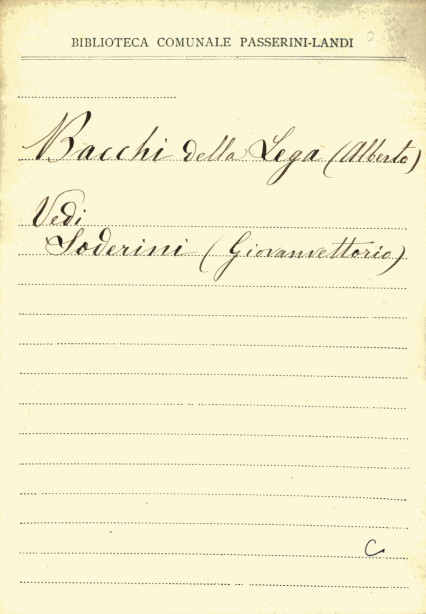 BIBLIOTECA COMUNALE PASSERINI-LANDI
Bacchi della Lega (Alberto)
Vedi
Soderini (Giovanvettorio)
C